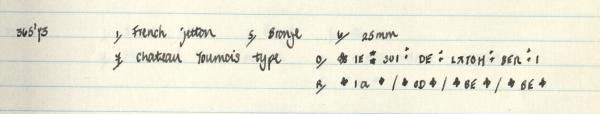 365'73 1, French jetton 5, Bronze 6/ 25mm
2/ Chateau Tournois type O/ * IE : SUI : DE : LATOH : BER : I
R/ * IA * / * OD * / * BE * / * BE *